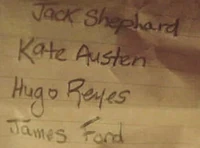 Jack Shephard
Kate Austen
Hugo Reyes
James Ford